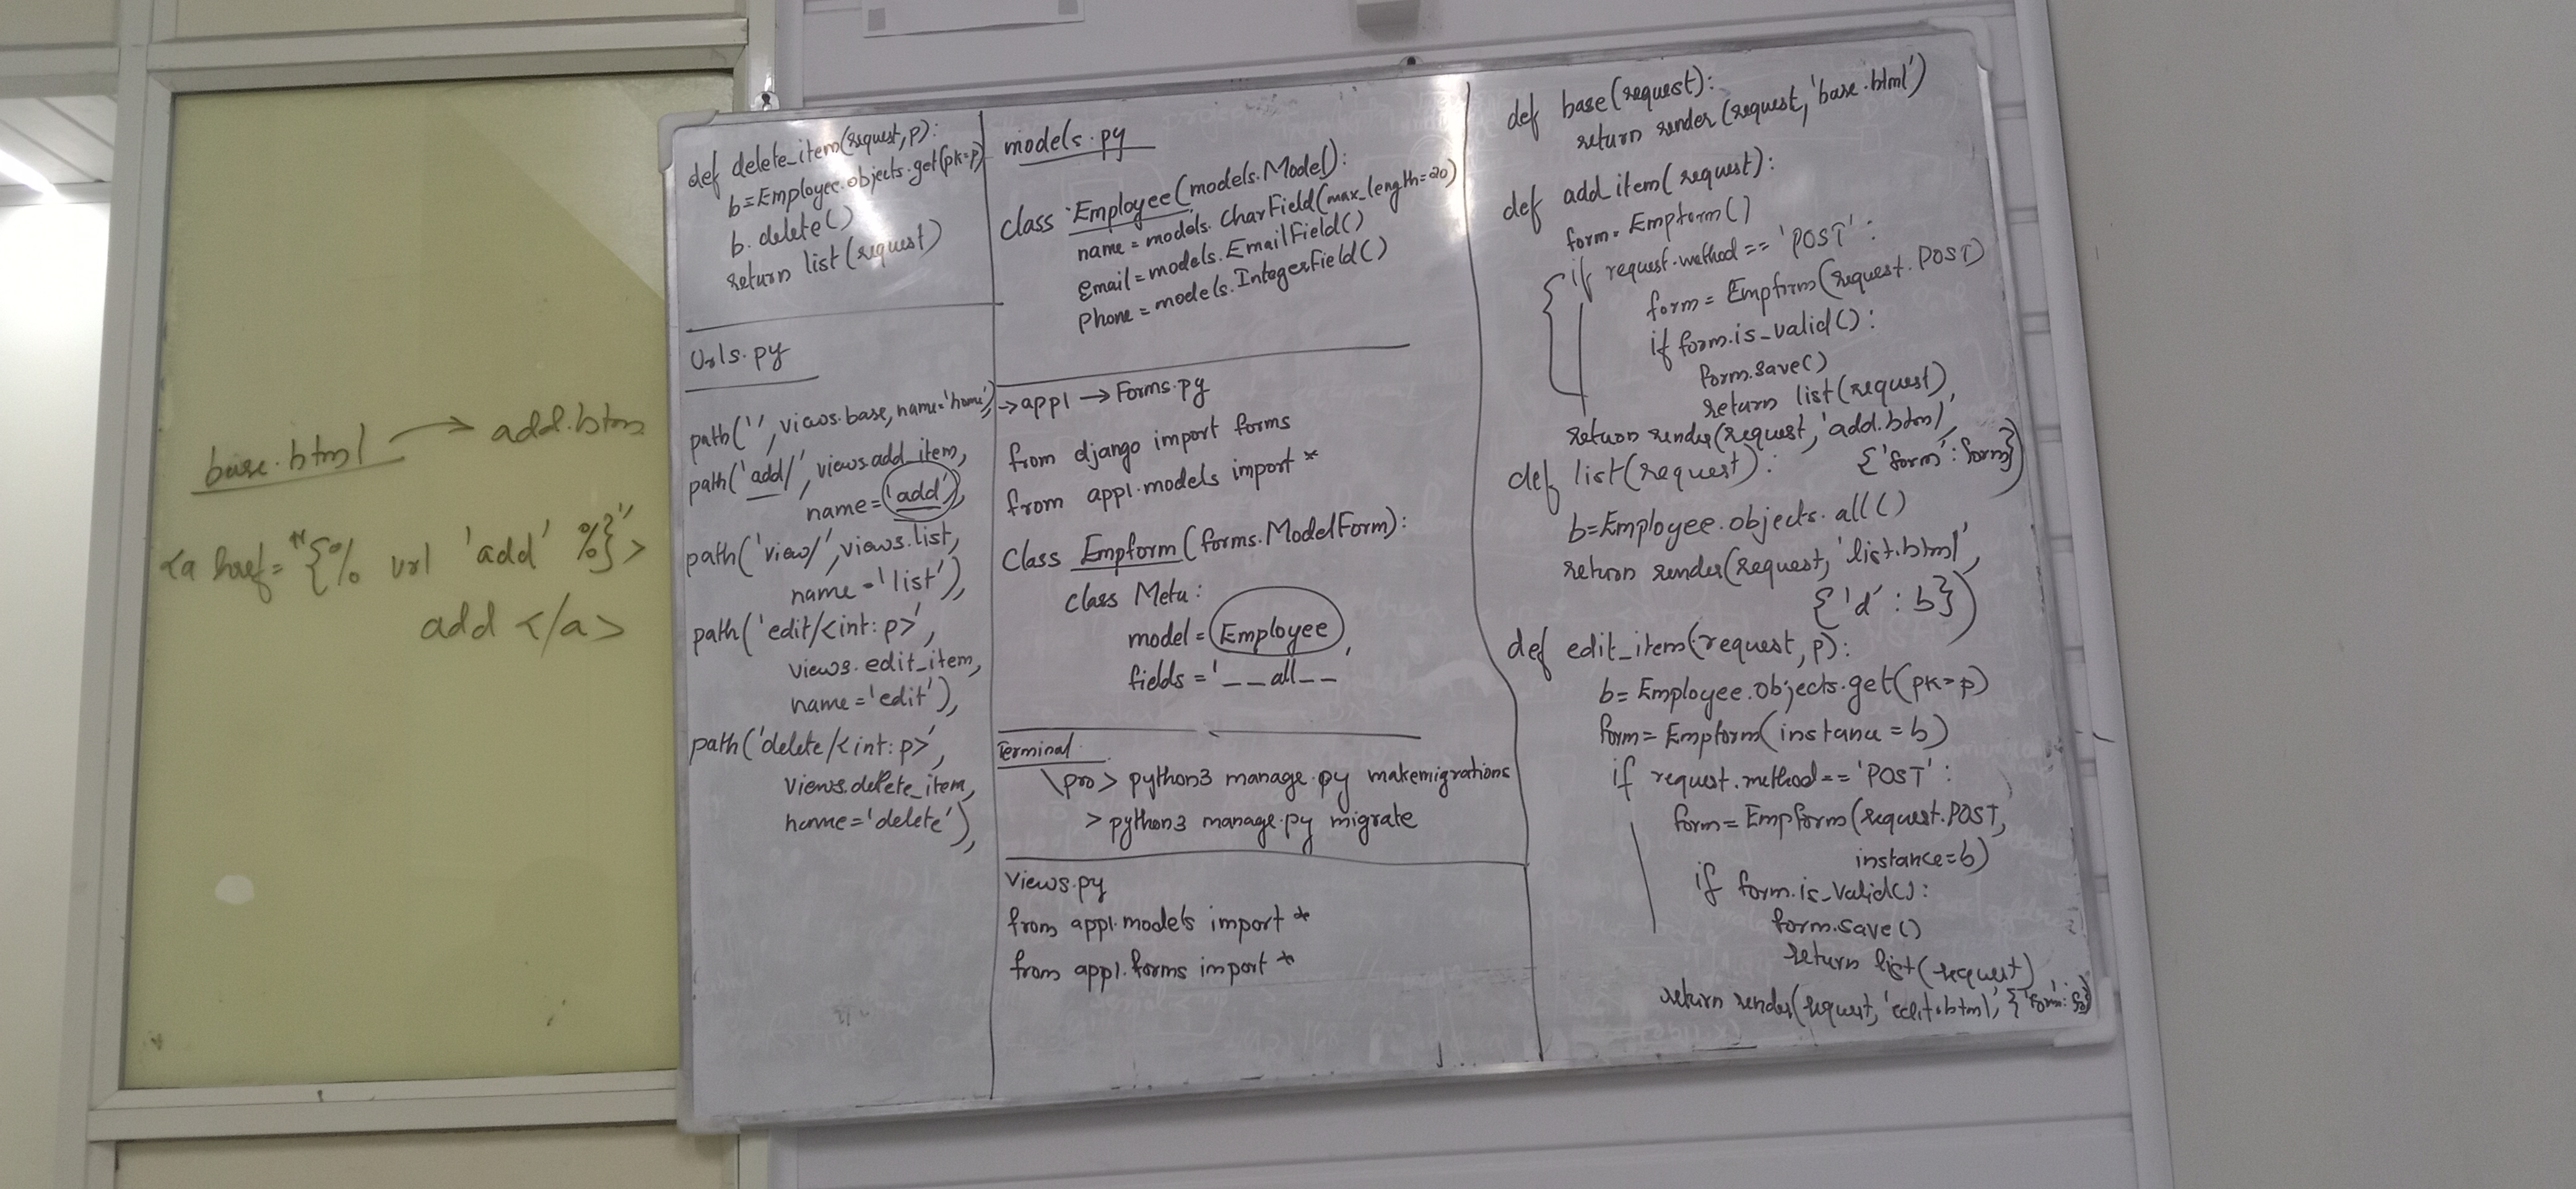 base.html → add.htm
<a href="{% url 'add' %}">
add </a>
def delete_item(request,p):
b=Employee.objects.get(pk=p)
b.delete()
return list(request)
Urls.py
path('', views.base, name='home'),
path('add/', views.add_item,
name='add'),
path('view/', views.list,
name='list'),
path('edit/<int:p>',
views.edit_item,
name='edit'),
path('delete/<int:p>',
views.delete_item,
name='delete'),
models.py
class Employee(models.Model):
name = models.CharField(max_length=20)
Email=models.EmailField()
Phone = models.IntegerField()
→ app1 → Forms.py
from django import forms
from app1.models import *
Class Empform(forms.ModelForm):
class Meta:
model = Employee,
fields = '__all__
Terminal
\pro> python3 manage.py makemigrations
> python3 manage.py migrate
Views.py
from app1.models import *
from app1.forms import *
def base(request):
return render(request,'base.html')
def add_item(request):
form= Empform()
if request.method == 'POST':
form = Empform(request.POST)
if form.is_valid():
form.save()
return list(request)
return render(request,'add.html',
{'form':form})
def list(request):
b=Employee.objects.all()
return render(request,'list.html',
{'d':b})
def edit_item(request,p):
b= Employee.objects.get(pk=p)
form= Empform(instance = b)
if request.method=='POST':
form= Empform(request.POST,
instance=b)
if form.is_valid():
form.save()
return list(request)
return render(request,'edit.html',{'form':